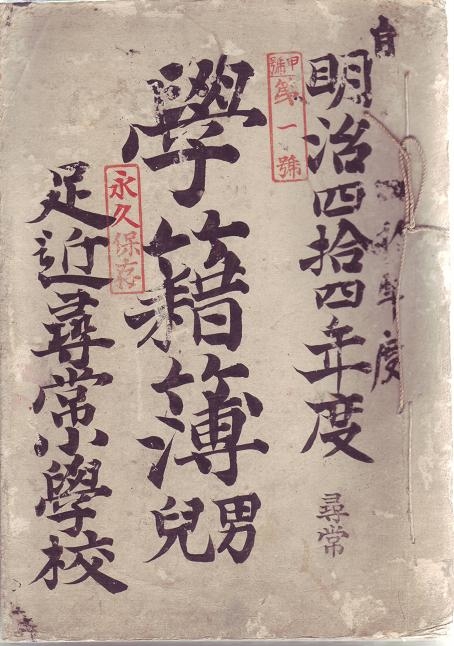 自
年度
明治四拾四年度
尋常
甲號
第一號
學籍簿
男兒
永久保存
足近尋常小學校